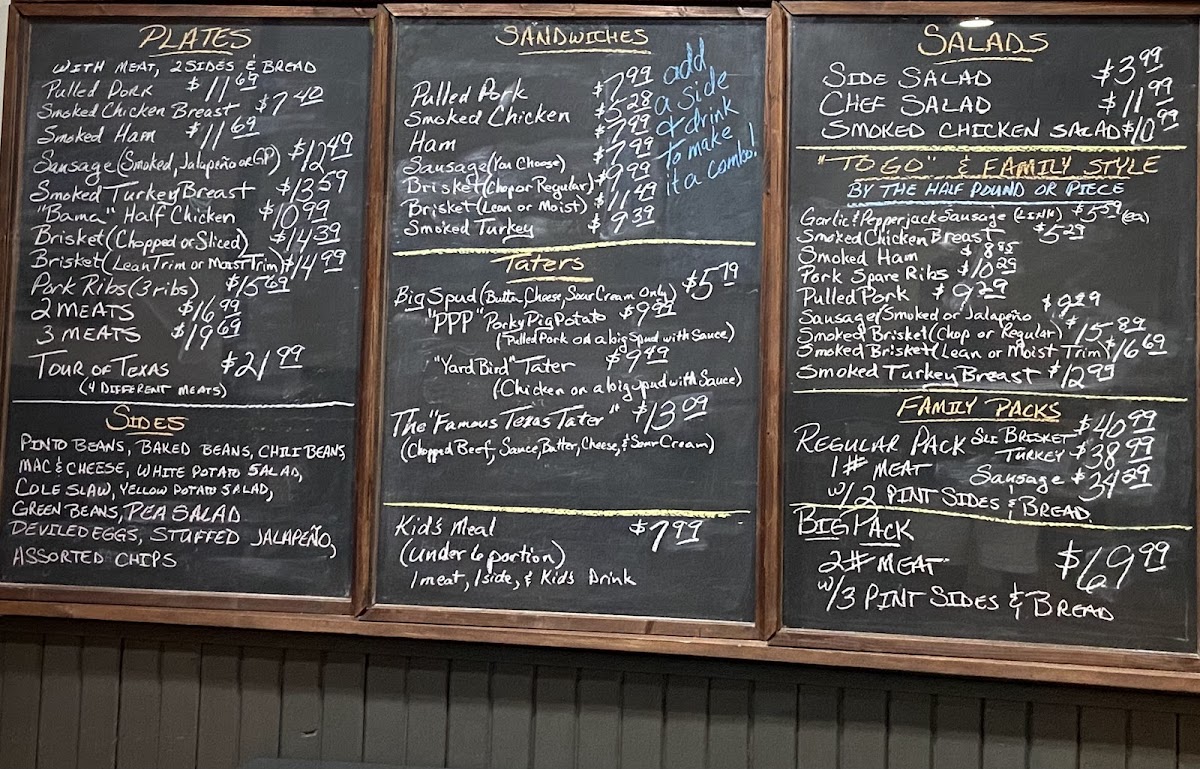 PLATES
WITH MEAT, 2 SIDES & BREAD
Pulled Pork $11.69
Smoked Chicken Breast $7.40
Smoked Ham $11.69
Sausage (Smoked, Jalapeño or GP) $12.49
Smoked Turkey Breast $13.59
"Bama" Half Chicken $10.99
Brisket (Chopped or Sliced) $14.39
Brisket (Lean Trim or Moist Trim) $14.99
Pork Ribs (3 ribs) $15.69
2 MEATS $16.99
3 MEATS $19.69
TOUR OF TEXAS $21.99
(4 DIFFERENT MEATS)
SIDES
PINTO BEANS, BAKED BEANS, CHILI BEANS
MAC & CHEESE, WHITE POTATO SALAD,
COLE SLAW, YELLOW POTATO SALAD,
GREEN BEANS, PEA SALAD
DEVILED EGGS, STUFFED JALAPEÑO,
ASSORTED CHIPS
SANDWICHES
Pulled Pork $7.99
Smoked Chicken $5.28
Ham $7.99
Sausage (You Choose) $7.99
Brisket (Chop or Regular) $9.99
Brisket (Lean or Moist) $11.49
Smoked Turkey $9.39
add
a side
& drink
to make
it a combo!
Taters
Big Spud (Butter, Cheese, Sour Cream Only) $5.79
"PPP" Porky Pig Potato $9.99
(Pulled Pork on a big Spud with Sauce)
"Yard Bird" Tater $9.49
(Chicken on a big spud with Sauce)
The "Famous Texas Tater" $13.09
(Chopped Beef, Sauce, Butter, Cheese, & Sour Cream)
Kid's Meal $7.99
(under 6 portion)
1 meat, 1 side, & Kid's Drink
SALADS
SIDE SALAD $3.99
CHEF SALAD $11.99
SMOKED CHICKEN SALAD $10.99
"TO GO" & FAMILY STYLE
BY THE HALF POUND OR PIECE
Garlic & Pepperjack Sausage (LINK) $5.59 (ea)
Smoked Chicken Breast $5.29
Smoked Ham $8.85
Pork Spare Ribs $10.29
Pulled Pork $9.29
Sausage (Smoked or Jalapeño $9.29
Smoked Brisket (Chop or Regular) $15.89
Smoked Brisket (Lean or Moist Trim) $16.69
Smoked Turkey Breast $12.95
FAMILY PACKS
REGULAR PACK SLI BRISKET $40.99
1# MEAT TURKEY $38.99
Sausage $34.29
W/2 PINT SIDES & BREAD.
BIG PACK
2# MEAT $69.99
W/3 PINT SIDES & BREAD